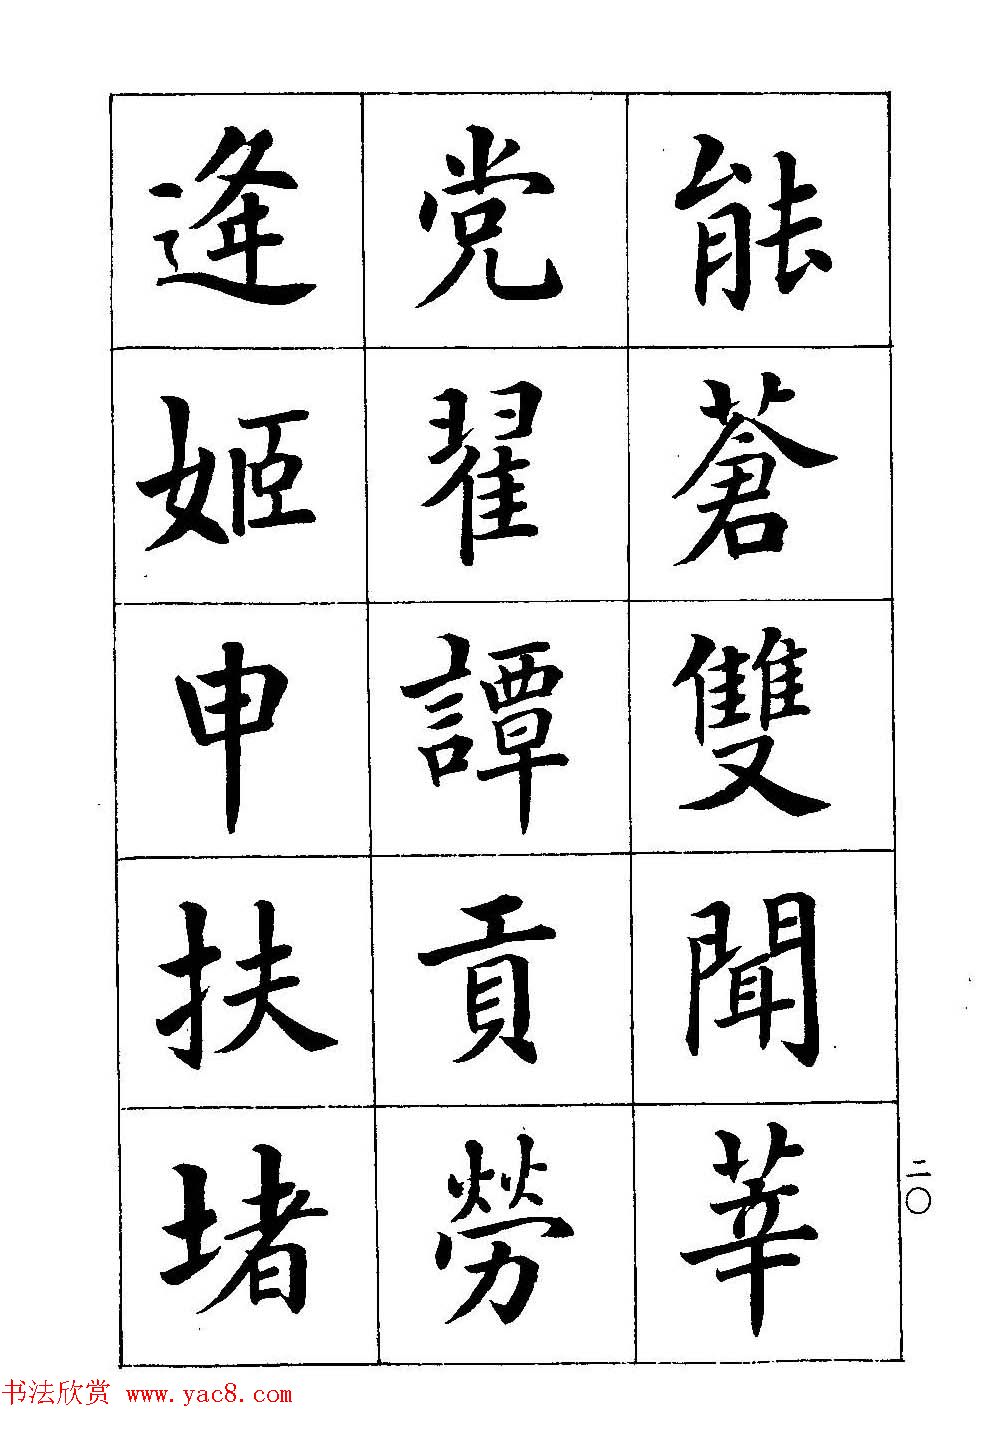 能蒼雙聞莘
党翟譚貢勞
逄姬申扶堵
二〇
书法欣赏 www.yac8.com